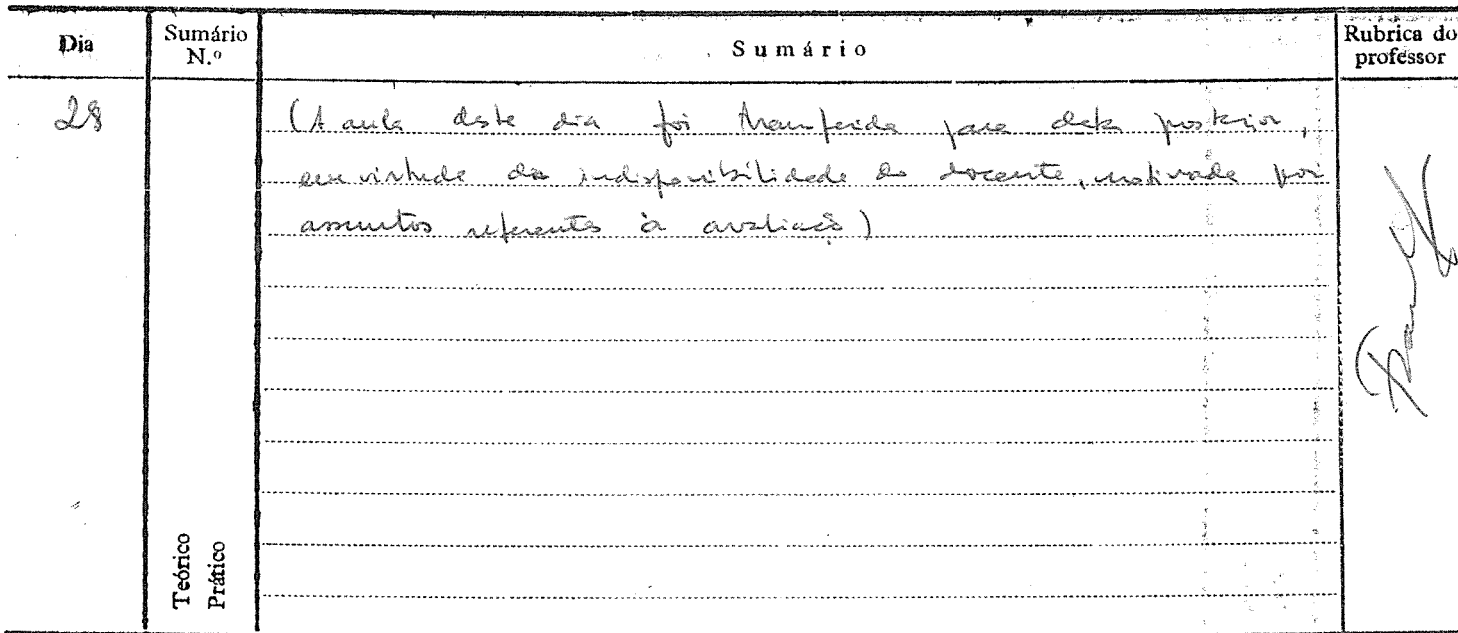 Dia
Sumário
N.º
Sumário
Rubrica do
professor
28
(A aula deste dia foi transferida para data posterior,
em virtude da indisponibilidade do docente, motivada por
assuntos referentes à avaliação)
Teórico
Prático